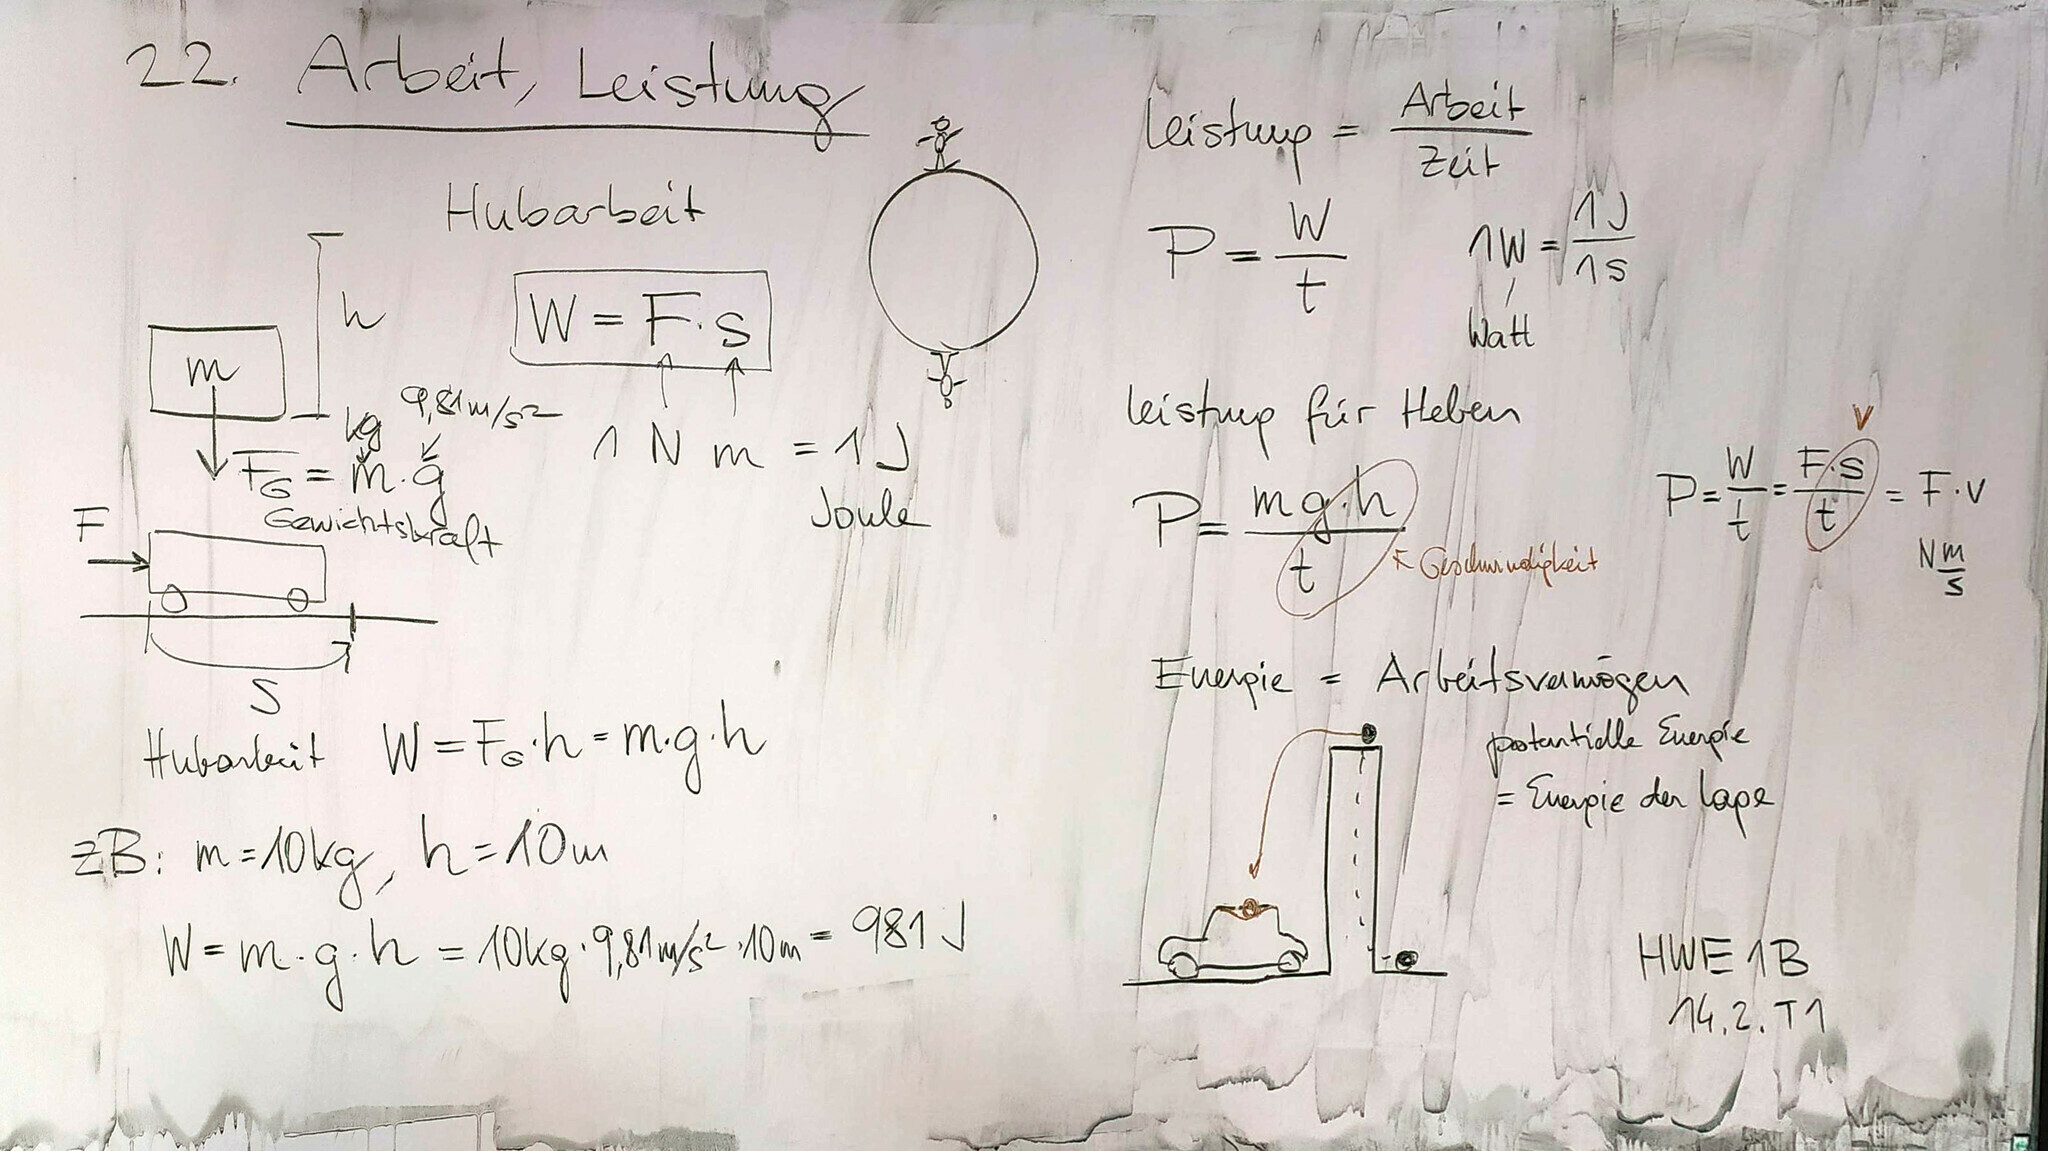 22. Arbeit, Leistung
Hubarbeit
h
W = F · s
m
kg 9,81m/s²
F_G = m · g
Gewichtskraft
1 N m = 1 J
Joule
F
S
Hubarbeit W = F_G · h = m · g · h
zB: m = 10kg, h = 10m
W = m · g · h = 10kg · 9,81m/s² · 10m = 981 J
Leistung = Arbeit / Zeit
P = W / t 1W = 1J / 1s
Watt
Leistung für Heben
P = m g · h / t
Geschwindigkeit
v
P = W / t = F · s / t = F · v
N m / s
Energie = Arbeitsvermögen
potentielle Energie
= Energie der Lage
HWE 1B
14.2. T1